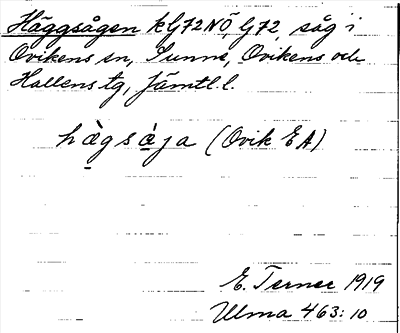 Häggsågen kG72NÖ, G72, såg i
Ovikens sn, Sunne, Ovikens och
Hallens tg, Jämtl. l.
hägsåja (Ovik EA)
E. Terner 1919
Ulma 463:10